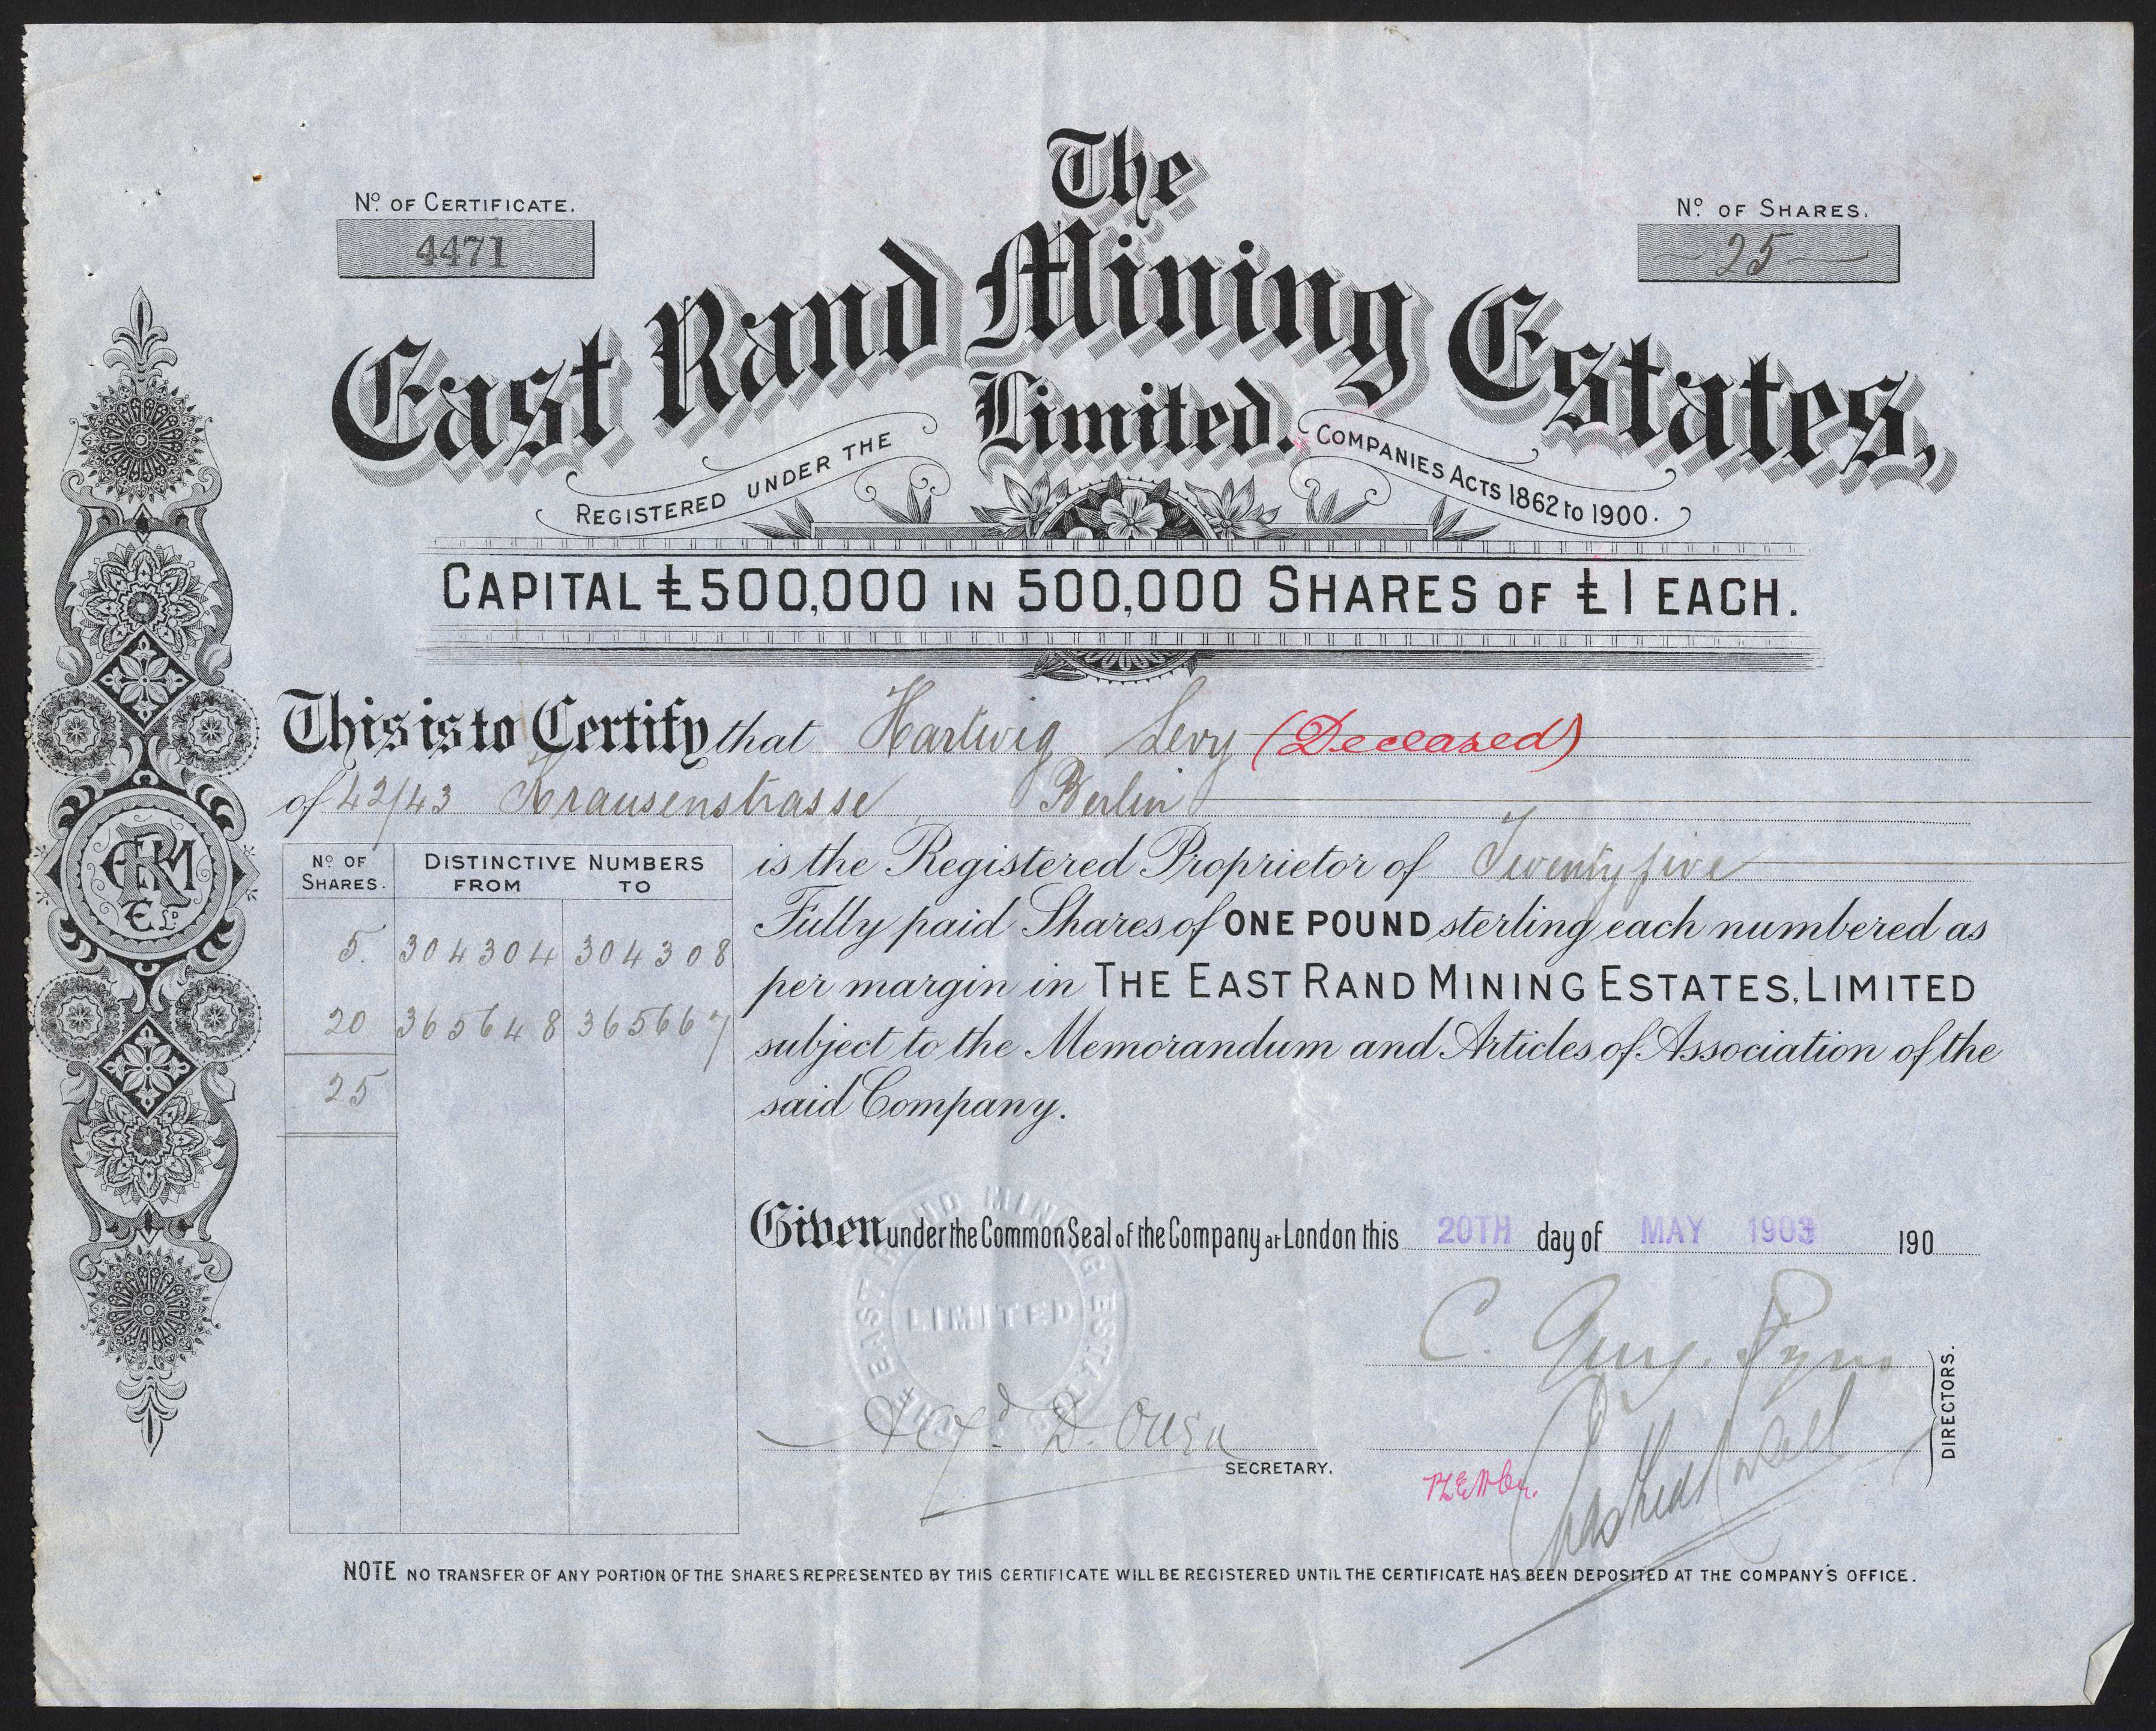 Nº OF CERTIFICATE.
4471
Nº OF SHARES.
25
The
East Rand Mining Estates,
Limited.
REGISTERED UNDER THE COMPANIES ACTS 1862 to 1900.
CAPITAL £500,000 IN 500,000 SHARES OF £1 EACH.
This is to Certify that Hartwig Levy (Deceased)
of 42/43 Krausenstrasse Berlin
is the Registered Proprietor of Twenty five
Fully paid Shares of ONE POUND sterling each numbered as
per margin in THE EAST RAND MINING ESTATES, LIMITED
subject to the Memorandum and Articles of Association of the
said Company.
Nº OF SHARES. DISTINCTIVE NUMBERS
FROM TO
5. 304304 304308
20 365648 365667
25
ERM
E Lᴰ
Given under the Common Seal of the Company at London this 20TH day of MAY 1903 190
THE EAST RAND MINING ESTATES
LIMITED
C. Aug.
D. Owen
SECRETARY.
DIRECTORS.
NOTE NO TRANSFER OF ANY PORTION OF THE SHARES REPRESENTED BY THIS CERTIFICATE WILL BE REGISTERED UNTIL THE CERTIFICATE HAS BEEN DEPOSITED AT THE COMPANY'S OFFICE.